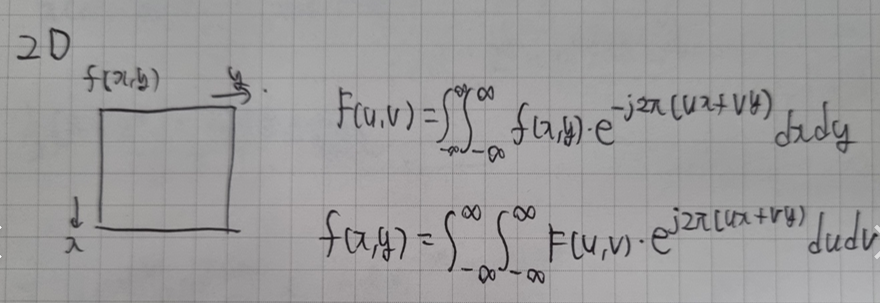 2D
f(x,y)
y
x
F(u,v) = ∫_{-∞}^{∞}∫_{-∞}^{∞} f(x,y)·e^{-j2π(ux+vy)} dxdy
f(x,y) = ∫_{-∞}^{∞}∫_{-∞}^{∞} F(u,v)·e^{j2π(ux+vy)} dudv